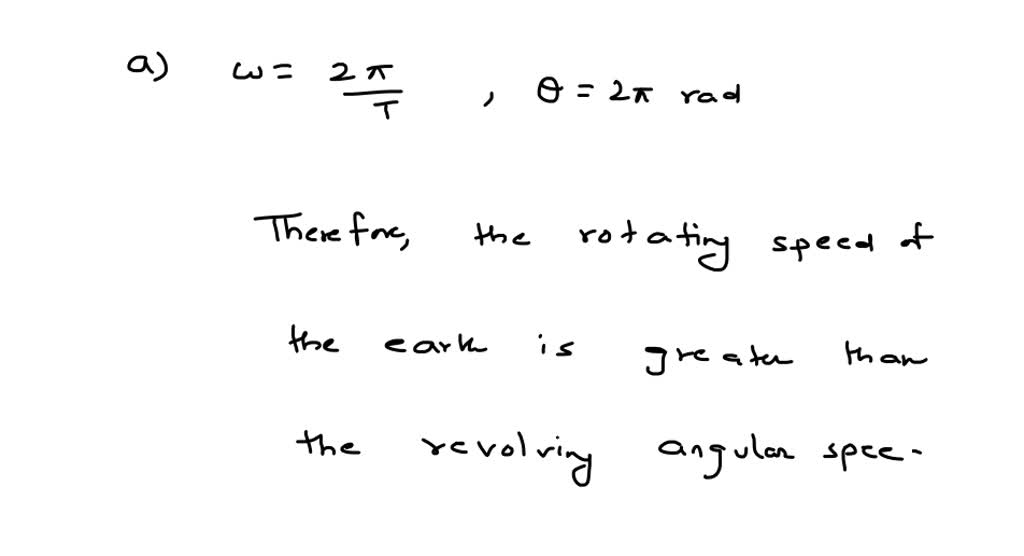 a) ω = 2π/T , θ = 2π rad
Therefore, the rotating speed of
the earth is greater than
the revolving angular spee-